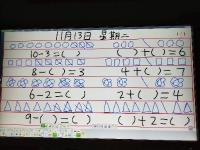 11月13日 星期二
10-3=( ) ( )+( )=6
8-( )=3 4+( )=7
6-2=( ) 2+( )=4
9-( )=( ) ( )+2=( )